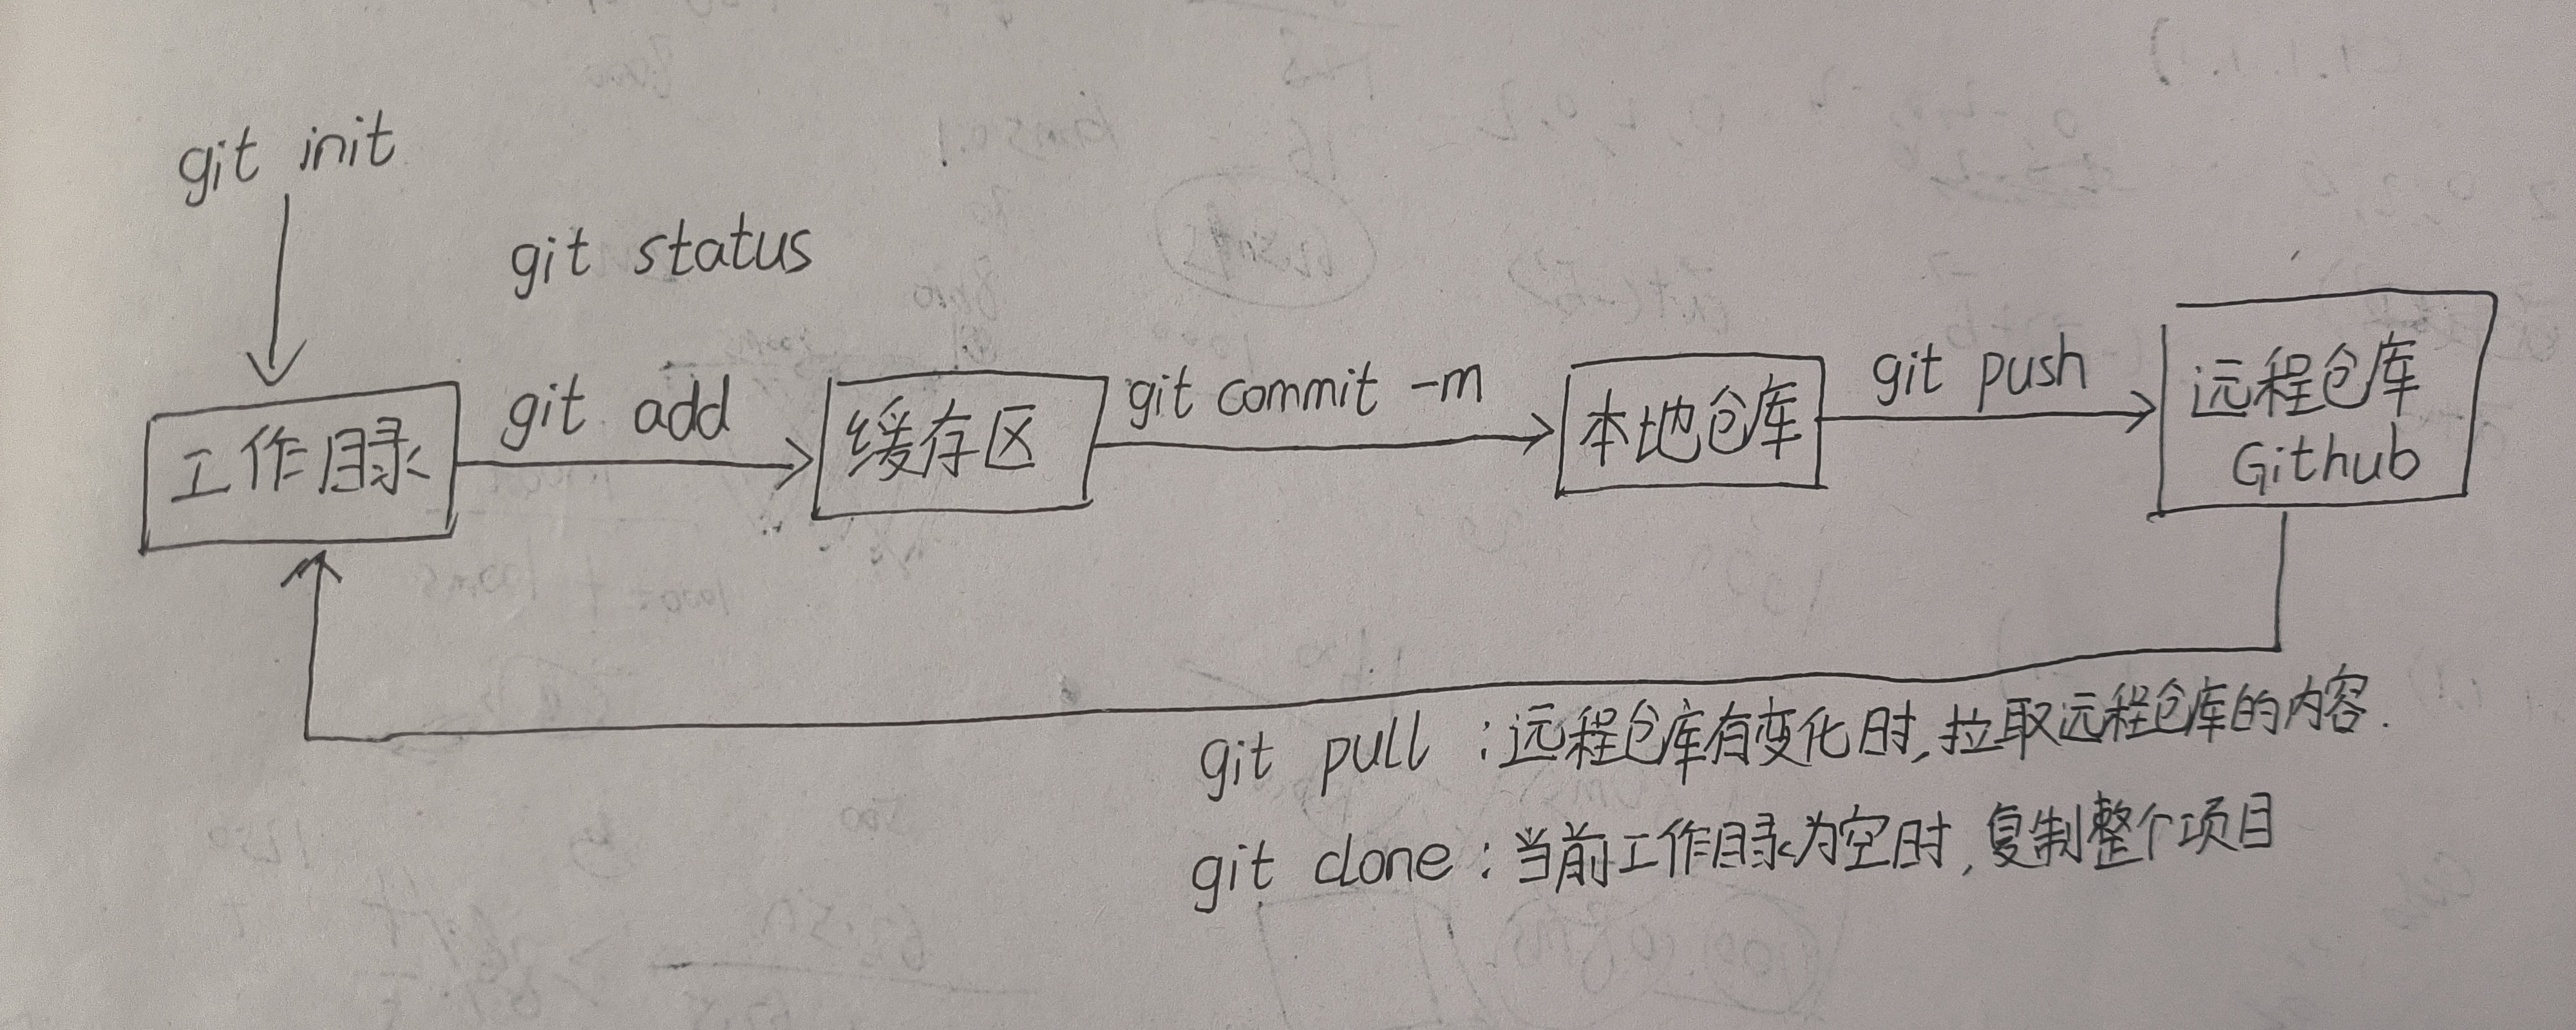 git init
git status
git add
git commit -m
git push
工作目录
缓存区
本地仓库
远程仓库
Github
git pull :远程仓库有变化时,拉取远程仓库的内容.
git clone:当前工作目录为空时,复制整个项目